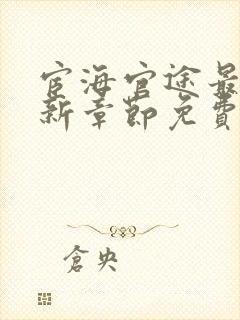 宦海官途最
新章节免费
倉央